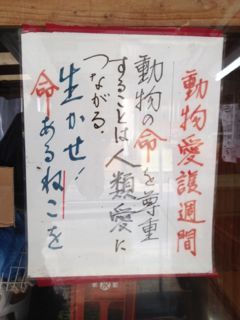 動物愛護週間
動物の命を尊重
することは人類愛に
つながる.
生かせ!
命あるねこを